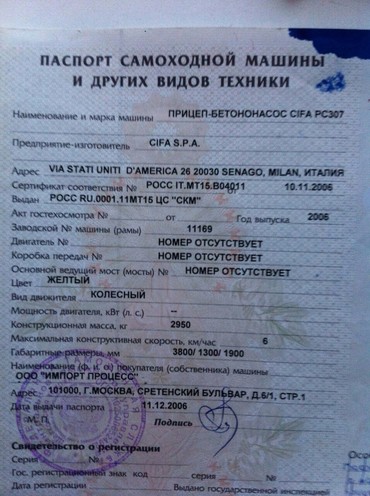 ПАСПОРТ САМОХОДНОЙ МАШИНЫ
И ДРУГИХ ВИДОВ ТЕХНИКИ
Наименование и марка машины ПРИЦЕП-БЕТОНОНАСОС CIFA PC307
Предприятие-изготовитель CIFA S.P.A.
Адрес VIA STATI UNITI D'AMERICA 26 20030 SENAGO, MILAN, ИТАЛИЯ
Сертификат соответствия № РОСС IT.МТ15.В04011 10.11.2006
Выдан РОСС RU.0001.11МТ15 ЦС "СКМ"
Акт гостехосмотра № от Год выпуска 2006
Заводской № машины (рамы) 11169
Двигатель № НОМЕР ОТСУТСТВУЕТ
Коробка передач № НОМЕР ОТСУТСТВУЕТ
Основной ведущий мост (мосты) № НОМЕР ОТСУТСТВУЕТ
Цвет ЖЕЛТЫЙ
Вид движителя КОЛЕСНЫЙ
Мощность двигателя, кВт (л. с.) --
Конструкционная масса, кг 2950
Максимальная конструктивная скорость, км/час 6
Габаритные размеры, мм 3800/ 1300/ 1900
Наименование (ф. и. о.) покупателя (собственника) машины
ООО "ИМПОРТ ПРОЦЕСС"
Адрес 101000, Г.МОСКВА, СРЕТЕНСКИЙ БУЛЬВАР, Д.6/1, СТР.1
Дата выдачи паспорта 11.12.2006
М. П. Подпись
Свидетельство о регистрации
Серия №
Гос. регистрационный знак код серия №
Дата регистрации
Выдано государственной инспекцией